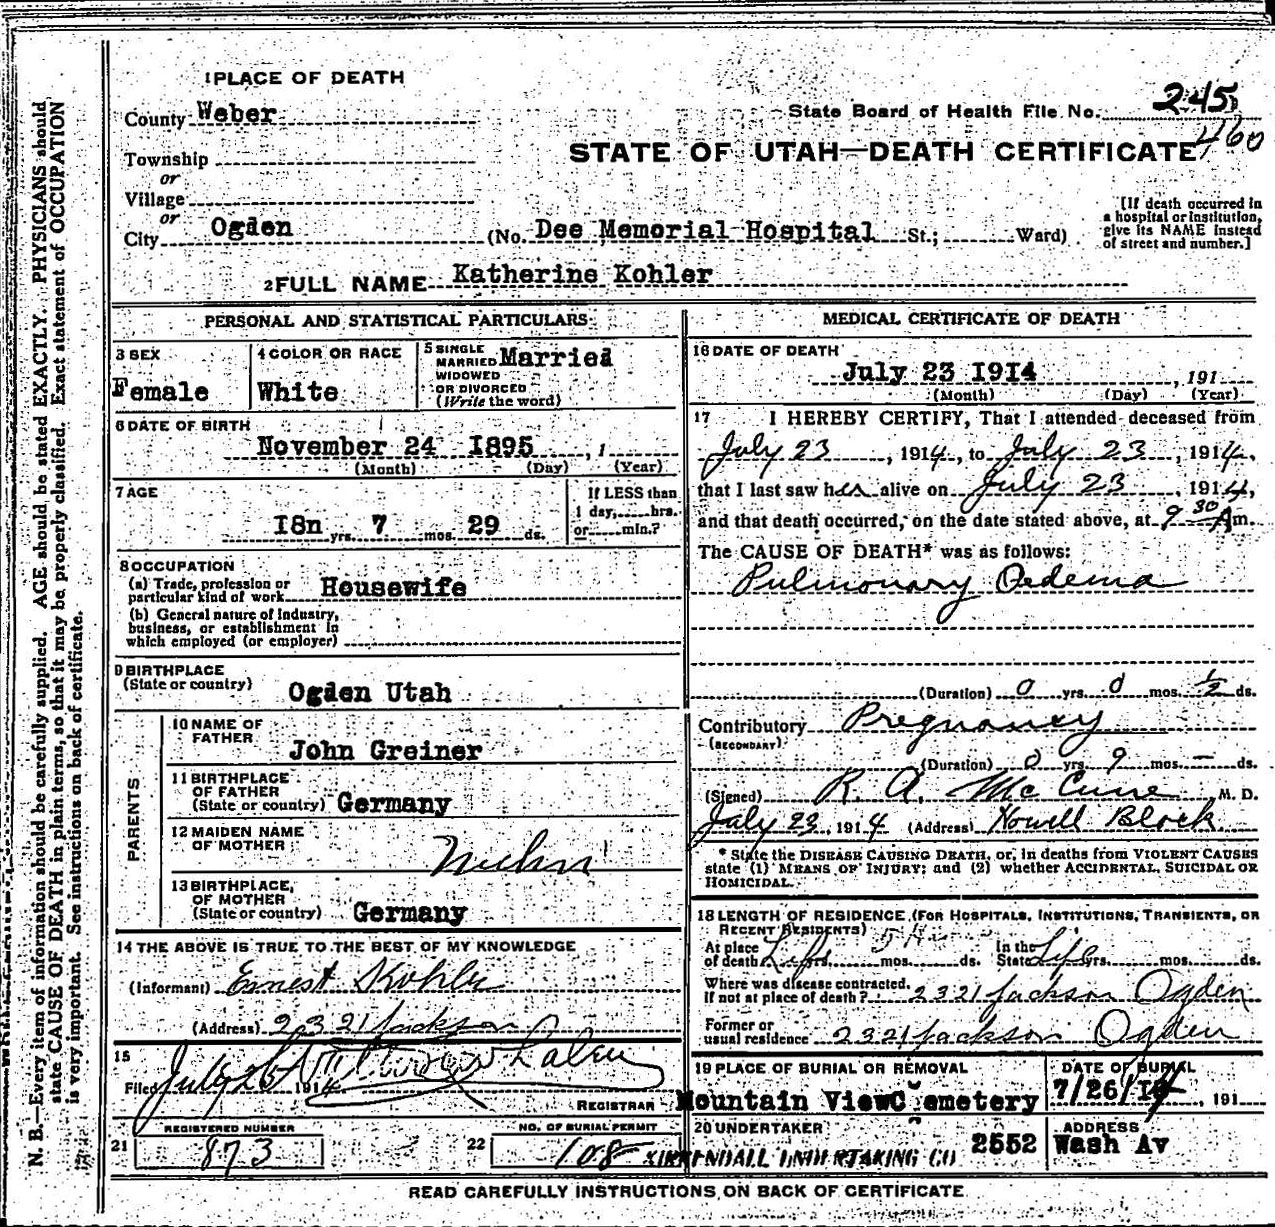 1 PLACE OF DEATH
County Weber
State Board of Health File No. 245
460
Township
or
Village
or
City Ogden
STATE OF UTAH—DEATH CERTIFICATE
(No. Dee Memorial Hospital St.; Ward)
[If death occurred in
a hospital or institution,
give its NAME instead
of street and number.]
2 FULL NAME Katherine Kohler
PERSONAL AND STATISTICAL PARTICULARS
3 SEX
Female
4 COLOR OR RACE
White
5 SINGLE
MARRIED
WIDOWED
OR DIVORCED
(Write the word)
Married
6 DATE OF BIRTH
November 24 I895, 1
(Month) (Day) (Year)
7 AGE
I8n yrs. 7 mos. 29 ds.
If LESS than
1 day, hrs.
or min.?
8 OCCUPATION
(a) Trade, profession or
particular kind of work Housewife
(b) General nature of industry,
business, or establishment in
which employed (or employer)
9 BIRTHPLACE
(State or country)
Ogden Utah
PARENTS
10 NAME OF
FATHER
John Greiner
11 BIRTHPLACE
OF FATHER
(State or country) Germany
12 MAIDEN NAME
OF MOTHER
13 BIRTHPLACE
OF MOTHER
(State or country) Germany
14 THE ABOVE IS TRUE TO THE BEST OF MY KNOWLEDGE
(Informant) Ernest Kohler
(Address) 2321 Jackson
15
Filed July 26 1914
REGISTRAR
REGISTERED NUMBER
21 873
NO. OF BURIAL PERMIT
22 108
MEDICAL CERTIFICATE OF DEATH
16 DATE OF DEATH
July 23 I9I4, 191
(Month) (Day) (Year)
17 I HEREBY CERTIFY, That I attended deceased from
July 23, 1914, to July 23, 1914,
that I last saw her alive on July 23, 1914,
and that death occurred, on the date stated above, at 9 30 Am.
The CAUSE OF DEATH* was as follows:
Pulmonary Oedema
(Duration) 0 yrs. 0 mos. 1/2 ds.
Contributory Pregnancy
(SECONDARY)
(Duration) 0 yrs. 9 mos. – ds.
(Signed) R. A. McCune M. D.
July 23, 1914 (Address) Howell Block
* State the DISEASE CAUSING DEATH, or, in deaths from VIOLENT CAUSES
state (1) MEANS OF INJURY; and (2) whether ACCIDENTAL, SUICIDAL OR
HOMICIDAL.
18 LENGTH OF RESIDENCE (FOR HOSPITALS, INSTITUTIONS, TRANSIENTS, OR
RECENT RESIDENTS)
At place
of death yrs. mos. ds.
In the
State Life yrs. mos. ds.
Where was disease contracted,
if not at place of death? 2321 Jackson Ogden
Former or
usual residence 2321 Jackson Ogden
19 PLACE OF BURIAL OR REMOVAL
Mountain View Cemetery
DATE OF BURIAL
7/26/14, 191
20 UNDERTAKER
KIRKENDALL UNDERTAKING CO 2552
ADDRESS
Wash Av
READ CAREFULLY INSTRUCTIONS ON BACK OF CERTIFICATE
N. B.—Every item of information should be carefully supplied. AGE should be stated EXACTLY. PHYSICIANS should
state CAUSE OF DEATH in plain terms, so that it may be properly classified. Exact statement of OCCUPATION
is very important. See instructions on back of certificate.